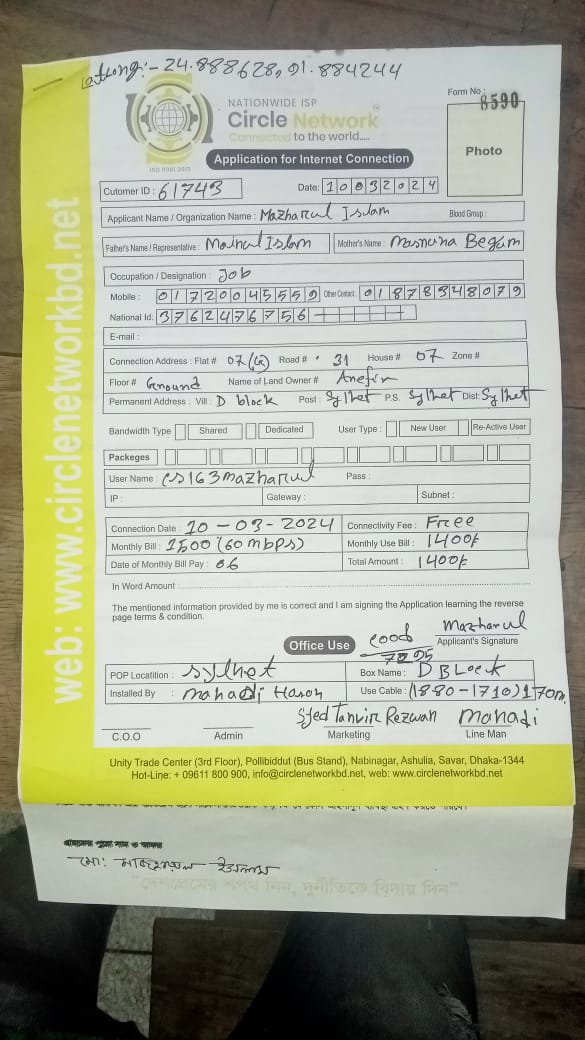 Latlong:- 24.888628, 91.884244
NATIONWIDE ISP
Circle Network
Connected to the world....
ISO 9001:2015
Form No :
8590
Photo
Application for Internet Connection
Cutomer ID : 61743 Date: 10032024
Applicant Name / Organization Name : Mazharul Islam Blood Group :
Father's Name / Representative : Mainul Islam Mother's Name : Begum
Occupation / Designation : Job
Mobile : 01720045559 Other Contact : 01878348079
National Id: 3762476756
E-mail :
Connection Address : Flat # 07(G) Road # 31 House # 07 Zone #
Floor # Ground Name of Land Owner #
Permanent Address : Vill : D block Post : Sylhet P.S. Sylhet Dist: Sylhet
Bandwidth Type Shared Dedicated User Type : New User Re-Active User
Packeges
User Name : cs163mazharul Pass :
IP : Gateway : Subnet :
Connection Date : 10-03-2024 Connectivity Fee : Free
Monthly Bill : 1500 (60 mbps) Monthly Use Bill : 1400/-
Date of Monthly Bill Pay : 06 Total Amount : 1400/-
In Word Amount :
The mentioned information provided by me is correct and I am signing the Application learning the reverse
page terms & condition.
Mazharul
Office Use
Applicant's Signature
POP Locatition : Sylhet Box Name : D BLock
Installed By : mahadi Hasan Use Cable : (1880-1710) 170m.
Syed Tanvir Rezwan Mahadi
C.O.O Admin Marketing Line Man
Unity Trade Center (3rd Floor), Pollibiddut (Bus Stand), Nabinagar, Ashulia, Savar, Dhaka-1344
Hot-Line: + 09611 800 900, info@circlenetworkbd.net, web: www.circlenetworkbd.net
web: www.circlenetworkbd.net
মো: ইসলাম
"দেশপ্রেমের শপথ নিন, দুর্নীতিকে বিদায় দিন"